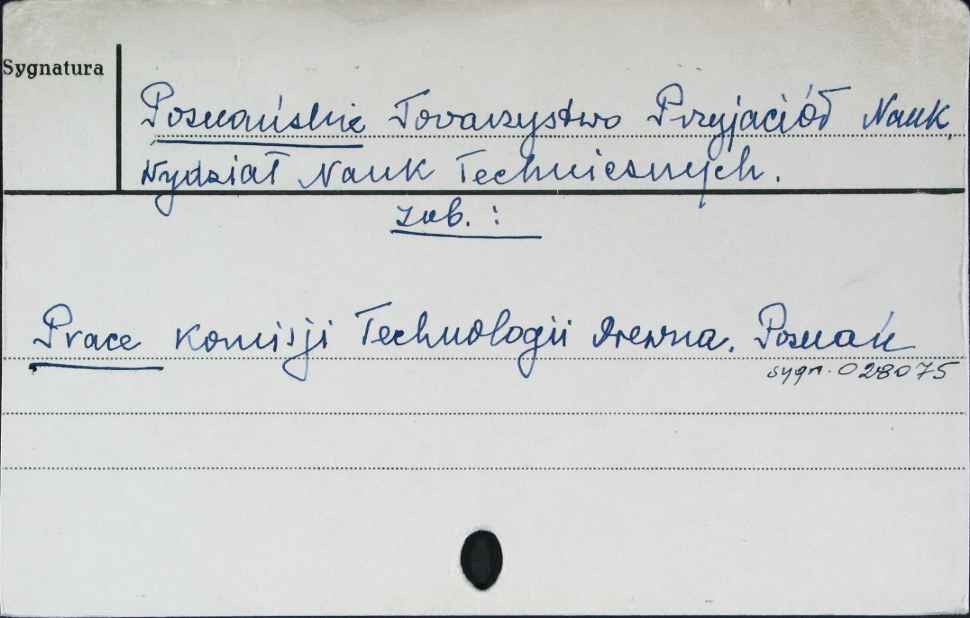 Sygnatura
Poznańskie Towarzystwo Przyjaciół Nauk.
Wydział Nauk Technicznych.
zob. :
Prace Komisji Technologii Drewna. Poznań
sygn. 028075